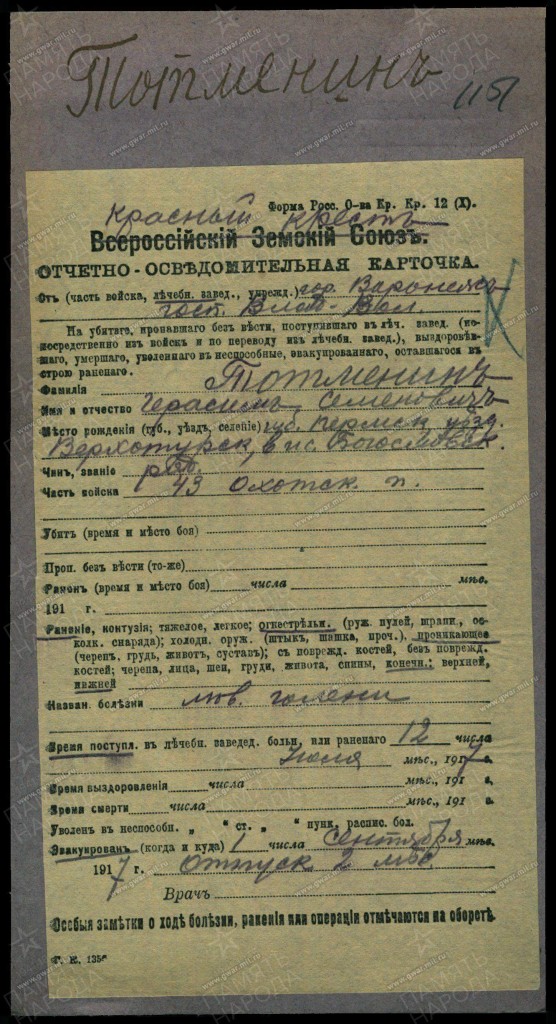 Тотменинъ
1151
Форма Росс. О-ва Кр. Кр. 12 (X).
Красный крестъ
Всероссійскій Земскій Союзъ.
ОТЧЕТНО-ОСВѢДОМИТЕЛЬНАЯ КАРТОЧКА.
Отъ (часть войска, лѣчебн. завед., учрежд.) гор. Воронежъ
госп.
На убитаго, пропавшаго безъ вѣсти, поступившаго въ лѣч. завед. (не-
посредственно изъ войскъ и по переводу изъ лѣчебн. завед.), выздоровѣв-
шаго, умершаго, уволеннаго въ неспособные, эвакуированнаго, оставшагося въ
строю раненаго.
Фамилія Тотменинъ
Имя и отчество Герасимъ Семеновичъ
Мѣсто рожденія (губ., уѣздъ, селеніе) губ. Пермск, уѣзд.
Верхотурск, в ис. Богословск.
Чинъ, званіе ряд.
Часть войска 43 Охотск п.
Убитъ (время и мѣсто боя)
Проп. безъ вѣсти (то-же)
Раненъ (время и мѣсто боя) числа мѣс.
191 г.
Раненіе, контузія; тяжелое, легкое; огнестрѣльн. (руж. пулей, шрапн., ос-
колк. снаряда); холодн. оруж. (штыкъ, шашка, проч.), проникающее
(черепъ, грудь, животъ, суставъ); съ поврежд. костей, безъ поврежд.
костей; черепа, лица, шеи, груди, живота, спины, конечн.: верхней,
нижней
Назван. болѣзни лѣв. голени
Время поступл. въ лѣчебн. заведед. больн. или раненаго 12 числа
Іюля мѣс., 1917 г.
Время выздоровленія числа мѣс., 191 г.
Время смерти числа мѣс., 191 г.
Уволенъ въ неспособн. „ “ ст. „ “ пунк. распис. бол.
Эвакуированъ (когда и куда) 1 числа Сентября мѣс.
1917 г. отпуск 2 мѣс
Врачъ
Особыя замѣтки о ходѣ болѣзни, раненія или операціи отмѣчаются на оборотѣ.